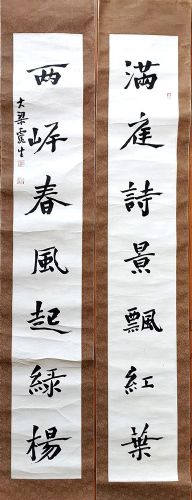 滿庭詩景飄紅葉
两岸春風起綠楊
大梁生